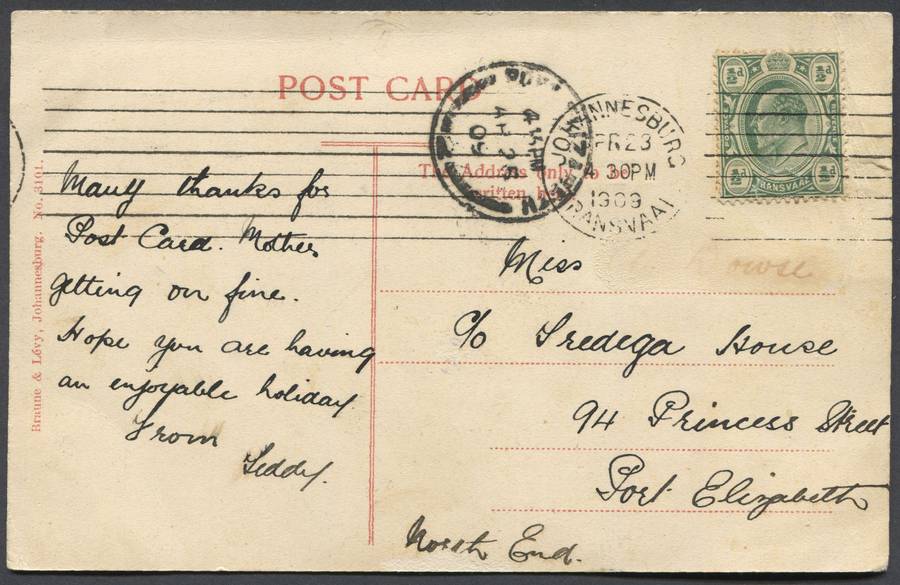 POST CARD
The Address only to be
written here
JOHANNESBURG
APR 23
4 30PM
1909
TRANSVAAL
PORT ELIZABETH
4 45PM
AP 25
09
½d ½d
½d TRANSVAAL ½d
Many thanks for
Post Card. Mother
getting on fine.
Hope you are having
an enjoyable holiday
From
Teddy.
Miss
c/o Tredega House
94 Princess Street
Port Elizabeth
North End.
Braune & Lévy, Johannesburg. No. 3101.